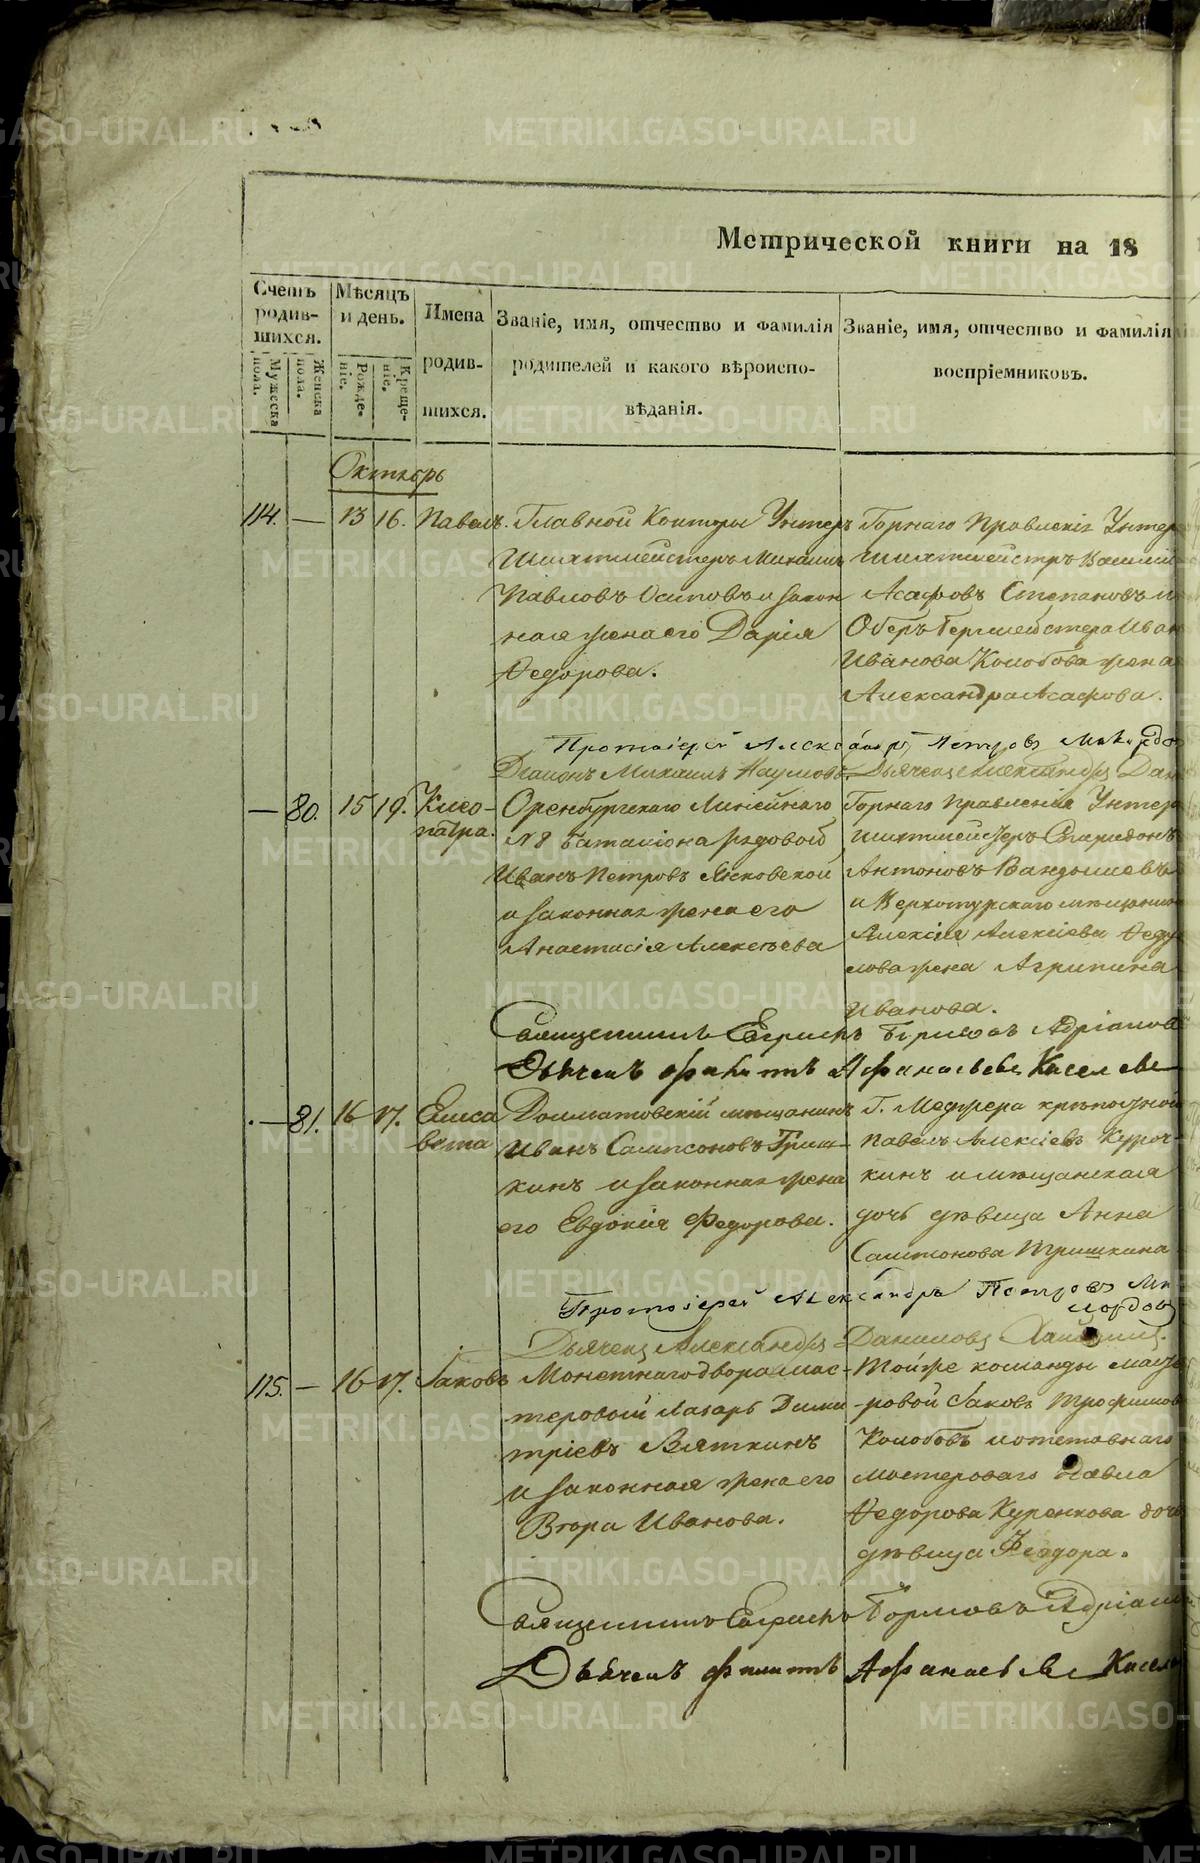 Метрической книги на 18
Счетъ родив-шихся.
Мужеска пола.
Женска пола.
Мѣсяцъ и день.
Рожде-ніе.
Креще-ніе.
Имена родив-шихся.
Званіе, имя, отчество и фамилія
родителей и какого вѣроиспо-
вѣданія.
Званіе, имя, отчество и фамилія
воспріемниковъ.
Октябрь
114. — 13 16. Павелъ.
Главной Конторы Унтеръ
Шихтмейстеръ Михаилъ
Павловъ Осиповъ и закон
ная жена его Дарія
Ѳедорова.
Горнаго Правленія Унтер
шихтмейстръ Василій
Асафовъ Степановъ и
Оберъ Бергмейстера Иван
Иванова Колобова жена
Александра Асафова.
Протоіерей Александръ Петровъ
Діаконъ Михаилъ Наумовъ. Дьячекъ Александръ Дан
— 80. 15 19. Клео-
патра.
Оренбургскаго Линейнаго
№ 8 баталіона рядовой
Иванъ Петровъ Лисковской
и законная жена его
Анастасія Алексѣева
Горнаго Правленія Унтер
шихтмейстеръ Спиридонъ
Антоновъ
и Верхотурскаго мѣщанина
Алексѣя Алексіева Ѳеду
лова жена Агрипина
Иванова.
Священникъ Адріанов
Дьячекъ Филиппъ Афанасьевъ Киселевъ
— 81. 16 17. Елиса
вета
Долматовскій мѣщанинъ
Иванъ Сампсоновъ Триш-
кинъ и законная жена
его Евдокія Федорова.
Г. Меджера крѣпостной
Павелъ Алексіевъ Куроч-
кинъ и мѣщанская
дочь дѣвица Анна
Сампсонова Тришкина
Протоіерей Александръ Петровъ
Дьячекъ Александръ Даниловъ
115. — 16 17. Іаковъ
Монетнаго двора мас-
теровой Лазарь Дими
тріевъ Вяткинъ
и законная жена его
Вѣра Иванова.
Тойже команды масте
ровой Іаковъ Трофимов
Колобовъ и отставнаго
мастероваго Павла
Ѳедорова Куренкова доч
дѣвица Феодора.
Священникъ
Дьячекъ Филиппъ Афанасьевъ Кисел
METRIKI.GASO-URAL.RU